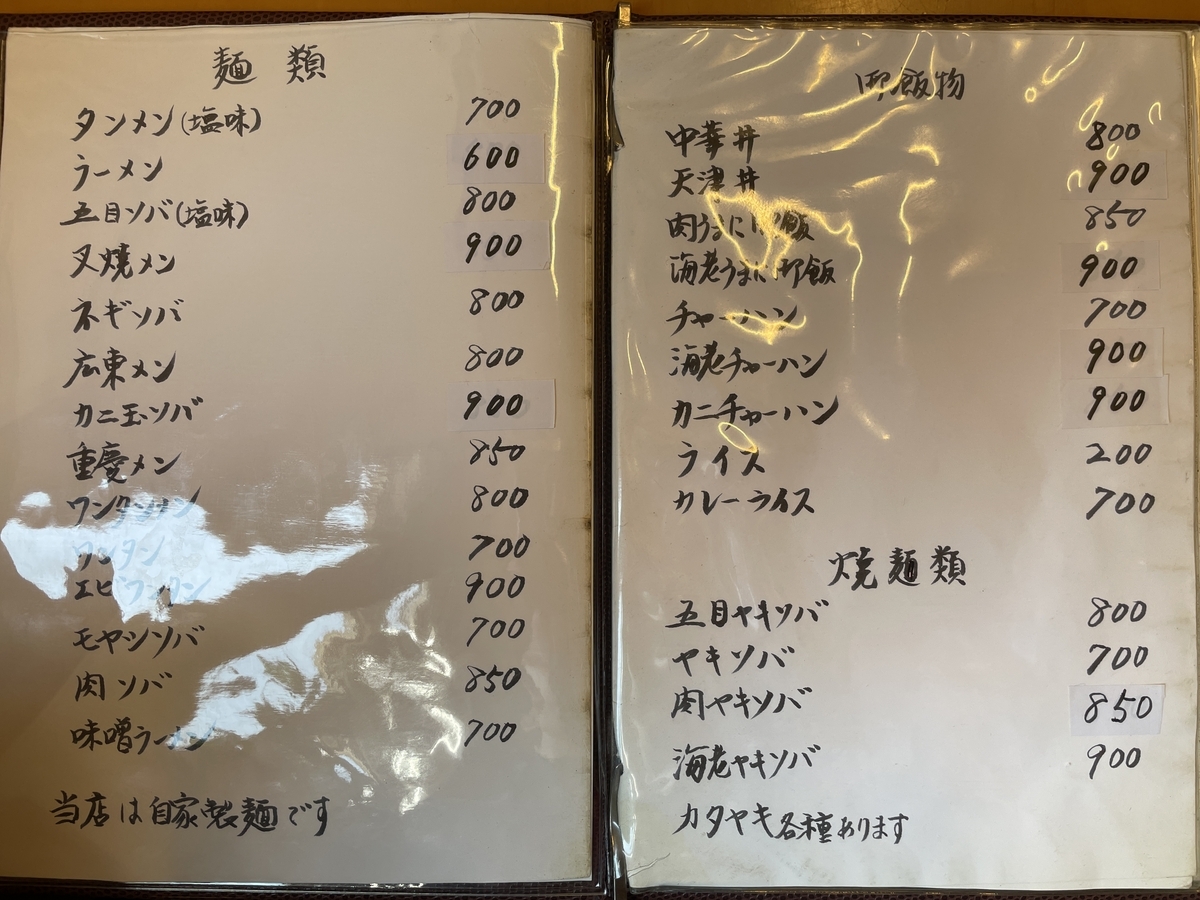 麺類
タンメン(塩味) 700
ラーメン 600
五目ソバ(塩味) 800
叉焼メン 900
ネギソバ 800
広東メン 800
カニ玉ソバ 900
重慶メン 850
ワンタンメン 800
ワンタン 700
エビワンタン 900
モヤシソバ 700
肉ソバ 850
味噌ラーメン 700
当店は自家製麺です
御飯物
中華丼 800
天津丼 900
肉うまに御飯 850
海老うまに御飯 900
チャーハン 700
海老チャーハン 900
カニチャーハン 900
ライス 200
カレーライス 700
焼麺類
五目ヤキソバ 800
ヤキソバ 700
肉ヤキソバ 850
海老ヤキソバ 900
カタヤキ各種あります